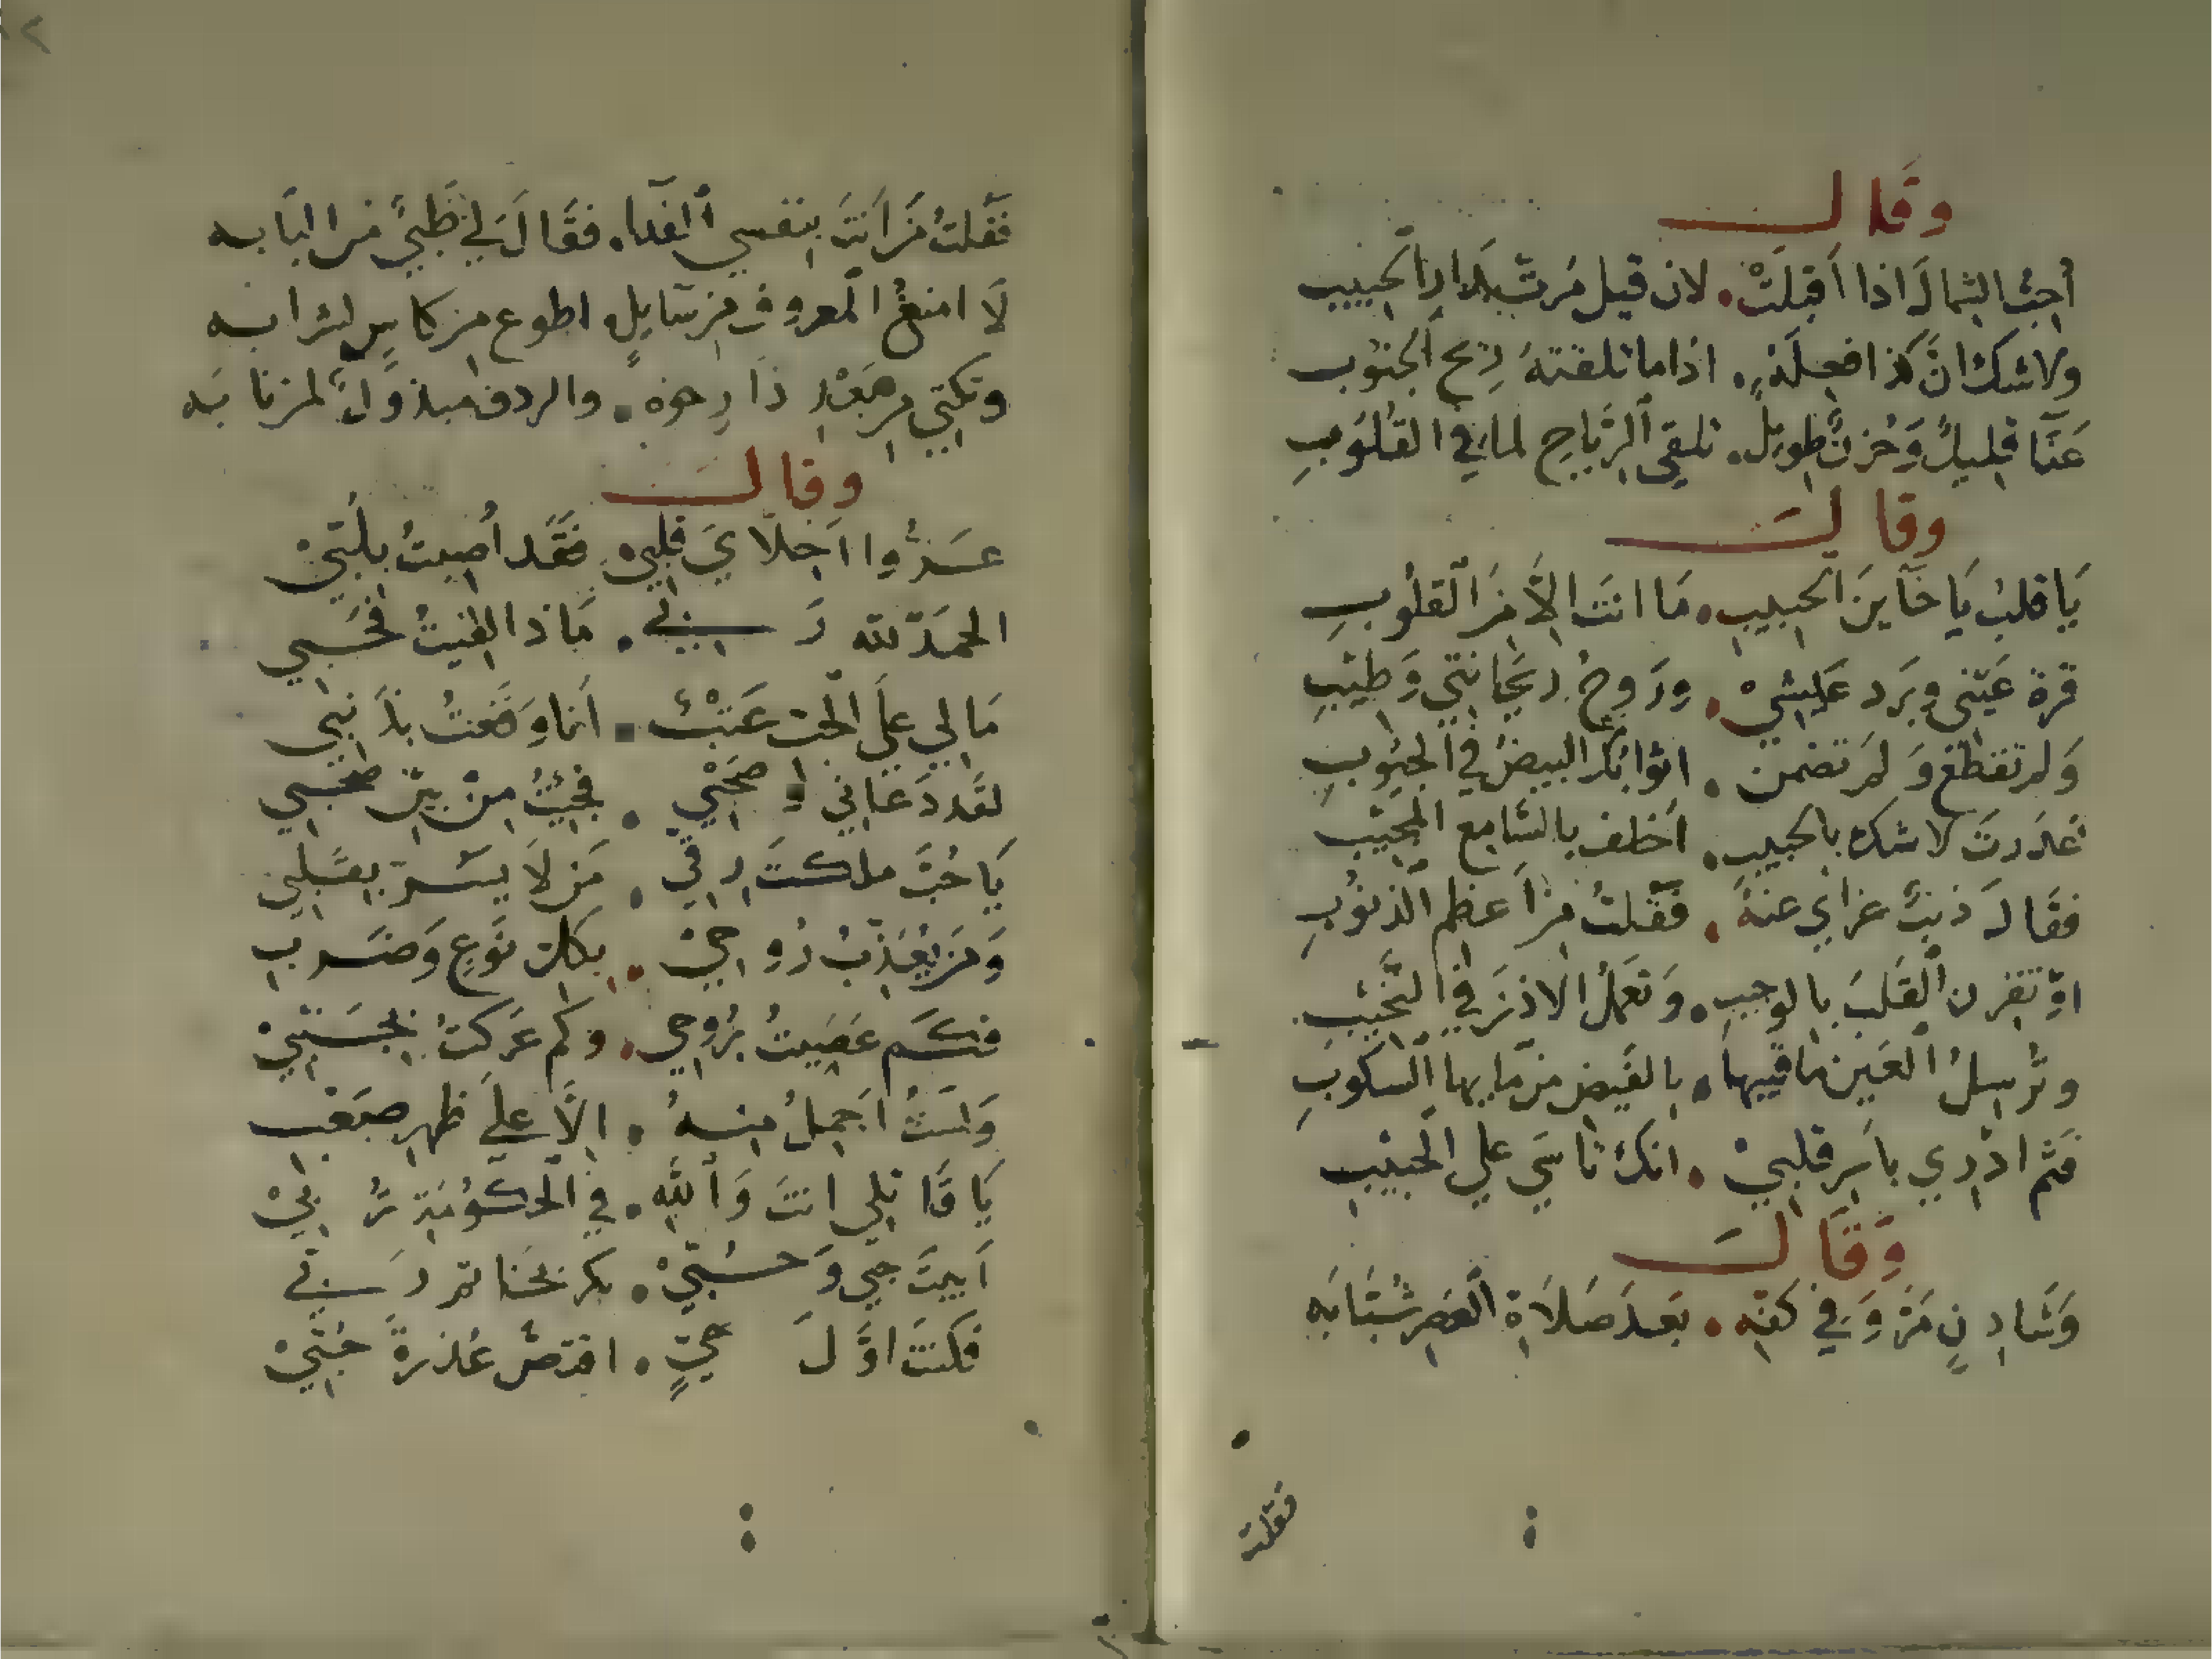 وقال
أحب الشمال اذا أقبلت. لان قيل مرت بدار الحبيب
ولا شك ان كذا فعله. اذا ما تلقته ريح الجنوب
عنا قليل وحزن طويل. تلقي الرياح لما في القلوب
وقال
يا قلب يا خاين الحبيب. ما انت الا من القلوب
قرة عيني وبرد عيشي. وروح ريحانتي وطيب
ولم تقطع ولم تضمن. اثوابك البيض في الجيوب
غدرت لا شك بالحبيب. أحلف بالسامع المجيب
فقال ذنب عزاي عنه. فقلت من أعظم الذنوب
او تقرن القلب بالوجيب. وتعمل الاذن في النحيب
وترسل العين ماقيها. بالفيض من مايها السكوب
فثم ادري ياسر قلبي. انك تاسي علي الحبيب
وقال
وشادن مر وفي كفه. بعد صلاة العصر شبابه
فقلت
فقلت من انت بنفسي الفدا. فقال لي ظبي من البابه
لا امنع المعروف من سايل. اطوع من كاس لشرابه
وتكتي من بعد ذا رخوه. والردف مبذول لمن نابه
وقال
عزوا اخلاي قلبي. فقد أصبت بلبي
الحمد لله ربي. ماذا لقيت فحسبي
مالي علي الحب عتب. أنا وقعت بذنبي
لقد دعاني صحبي. فجئت من بين صحبي
يا حب ملكت رقي. من لا يسر بقلبي
ومن يعذب روحي. بكل نوع وضرب
فكم عصيت بروحي. وكم عركت بجنبي
ولست احمل منه. الا علي ظهر صعب
يا قاتلي انت والله. في الحكومة تربي
أبيت حبي وحسبي. بكر نحنا ثم ربي
فكنت اول حب. افتض عذرة حبي